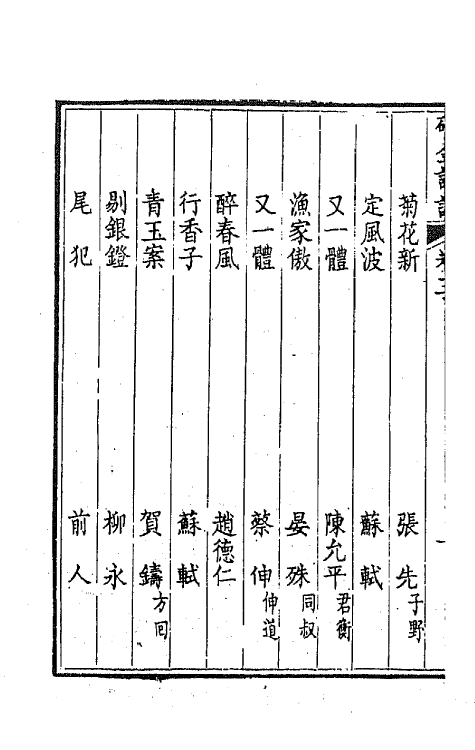 碎金詞譜 卷二
菊花新 張先 子野
定風波 蘇軾
又一體 陳允平 君衡
漁家傲 晏殊 同叔
又一體 蔡伸 伸道
醉春風 趙德仁
行香子 蘇軾
青玉案 賀鑄 方回
剔銀鐙 柳永
尾犯 前人